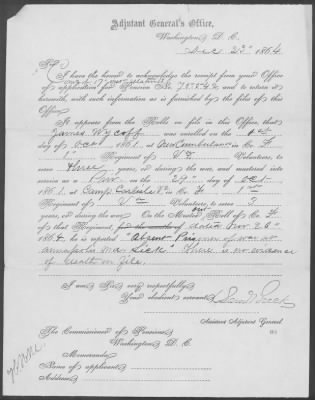 Adjutant General's Office,
Washington, D. C.
Dec 23d 1864
Sir:
I have the honor to acknowledge the receipt from your Office
of application for Pension No. and to return it
herewith, with such information as is furnished by the files of this
Office.
It appears from the Rolls on file in this Office, that
James Wycoff was enrolled on the 1st
day of Oct 1861, at New Cumberland in Co. F
1st Regiment of Va Volunteers, to
serve three years, or during the war, and mustered into
service as a Priv on the 29" day of Oct
1861, at Camp Carlile Va in Co. F 1st
Regiment of Va Volunteers, to serve 3
years, or during the war. On the Muster out Roll of Co. F
of that Regiment, dated Nov 26"
1864, he is reported "Absent Prisoner of war at
Annapolis Md Sick" There is no evidence
of death on file.
I am Sir, very respectfully,
Your obedient servant,
Assistant Adjutant General
The Commissioner of Pensions,
Washington, D. C.
Memoranda:
Name of applicant
Address